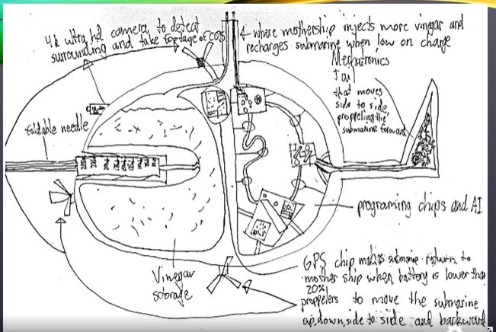 4k ultra hd camera to detect
surrounding and take footage of COTS
where mothership injects more vinegar and
recharges submarine when low on charge
Mechatronics
Tail
that moves
side to side,
propelling the
submarine forward
foldable needle
programing chips and AI
Vinegar
storage
GPS chip makes submarine return to
mother ship when battery is lower than
20%
propellers to move the submarine
up, down, side to side and backward